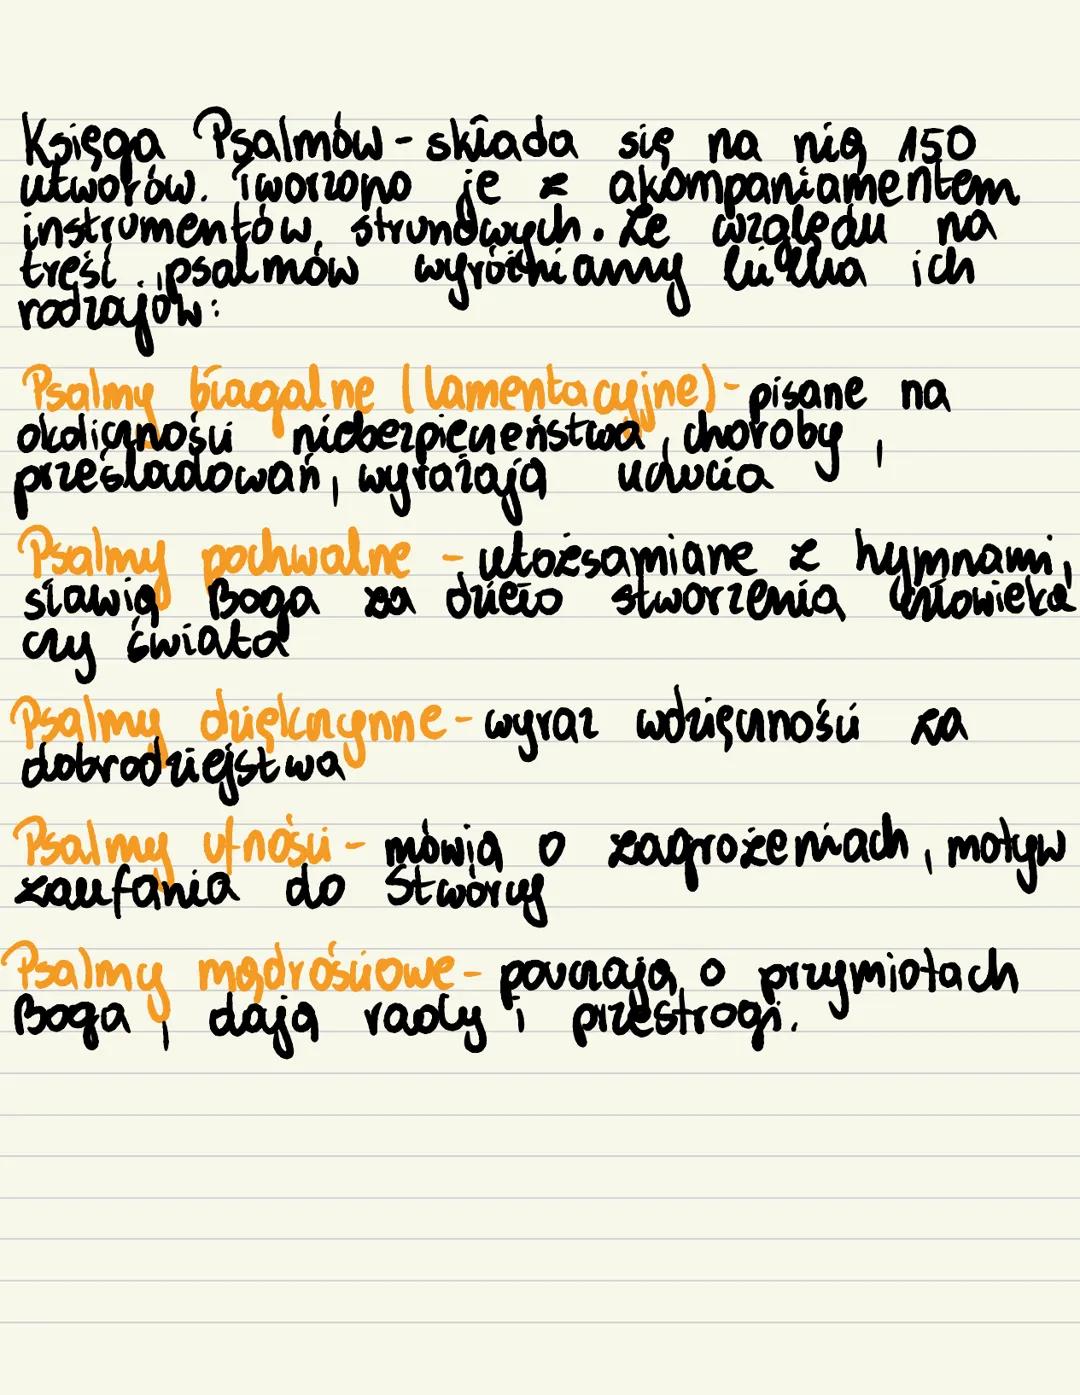 Księga Psalmów - składa się na nią 150
utworów. Tworzono je z akompaniamentem
instrumentów strunowych. Ze względu na
treść psalmów wyróżniamy kilka ich
rodzajów:
Psalmy błagalne (lamentacyjne) - pisane na
okoliczności niebezpieczeństwa, choroby,
prześladowań, wyrażają uczucia
Psalmy pochwalne - utożsamiane z hymnami,
sławią Boga za dzieło stworzenia człowieka
czy świata
Psalmy dziękczynne - wyraz wdzięczności za
dobrodziejstwa
Psalmy ufności - mówią o zagrożeniach, motyw
zaufania do Stwórcy
Psalmy mądrościowe - pouczają o przymiotach
Boga, dają rady i przestrogi.